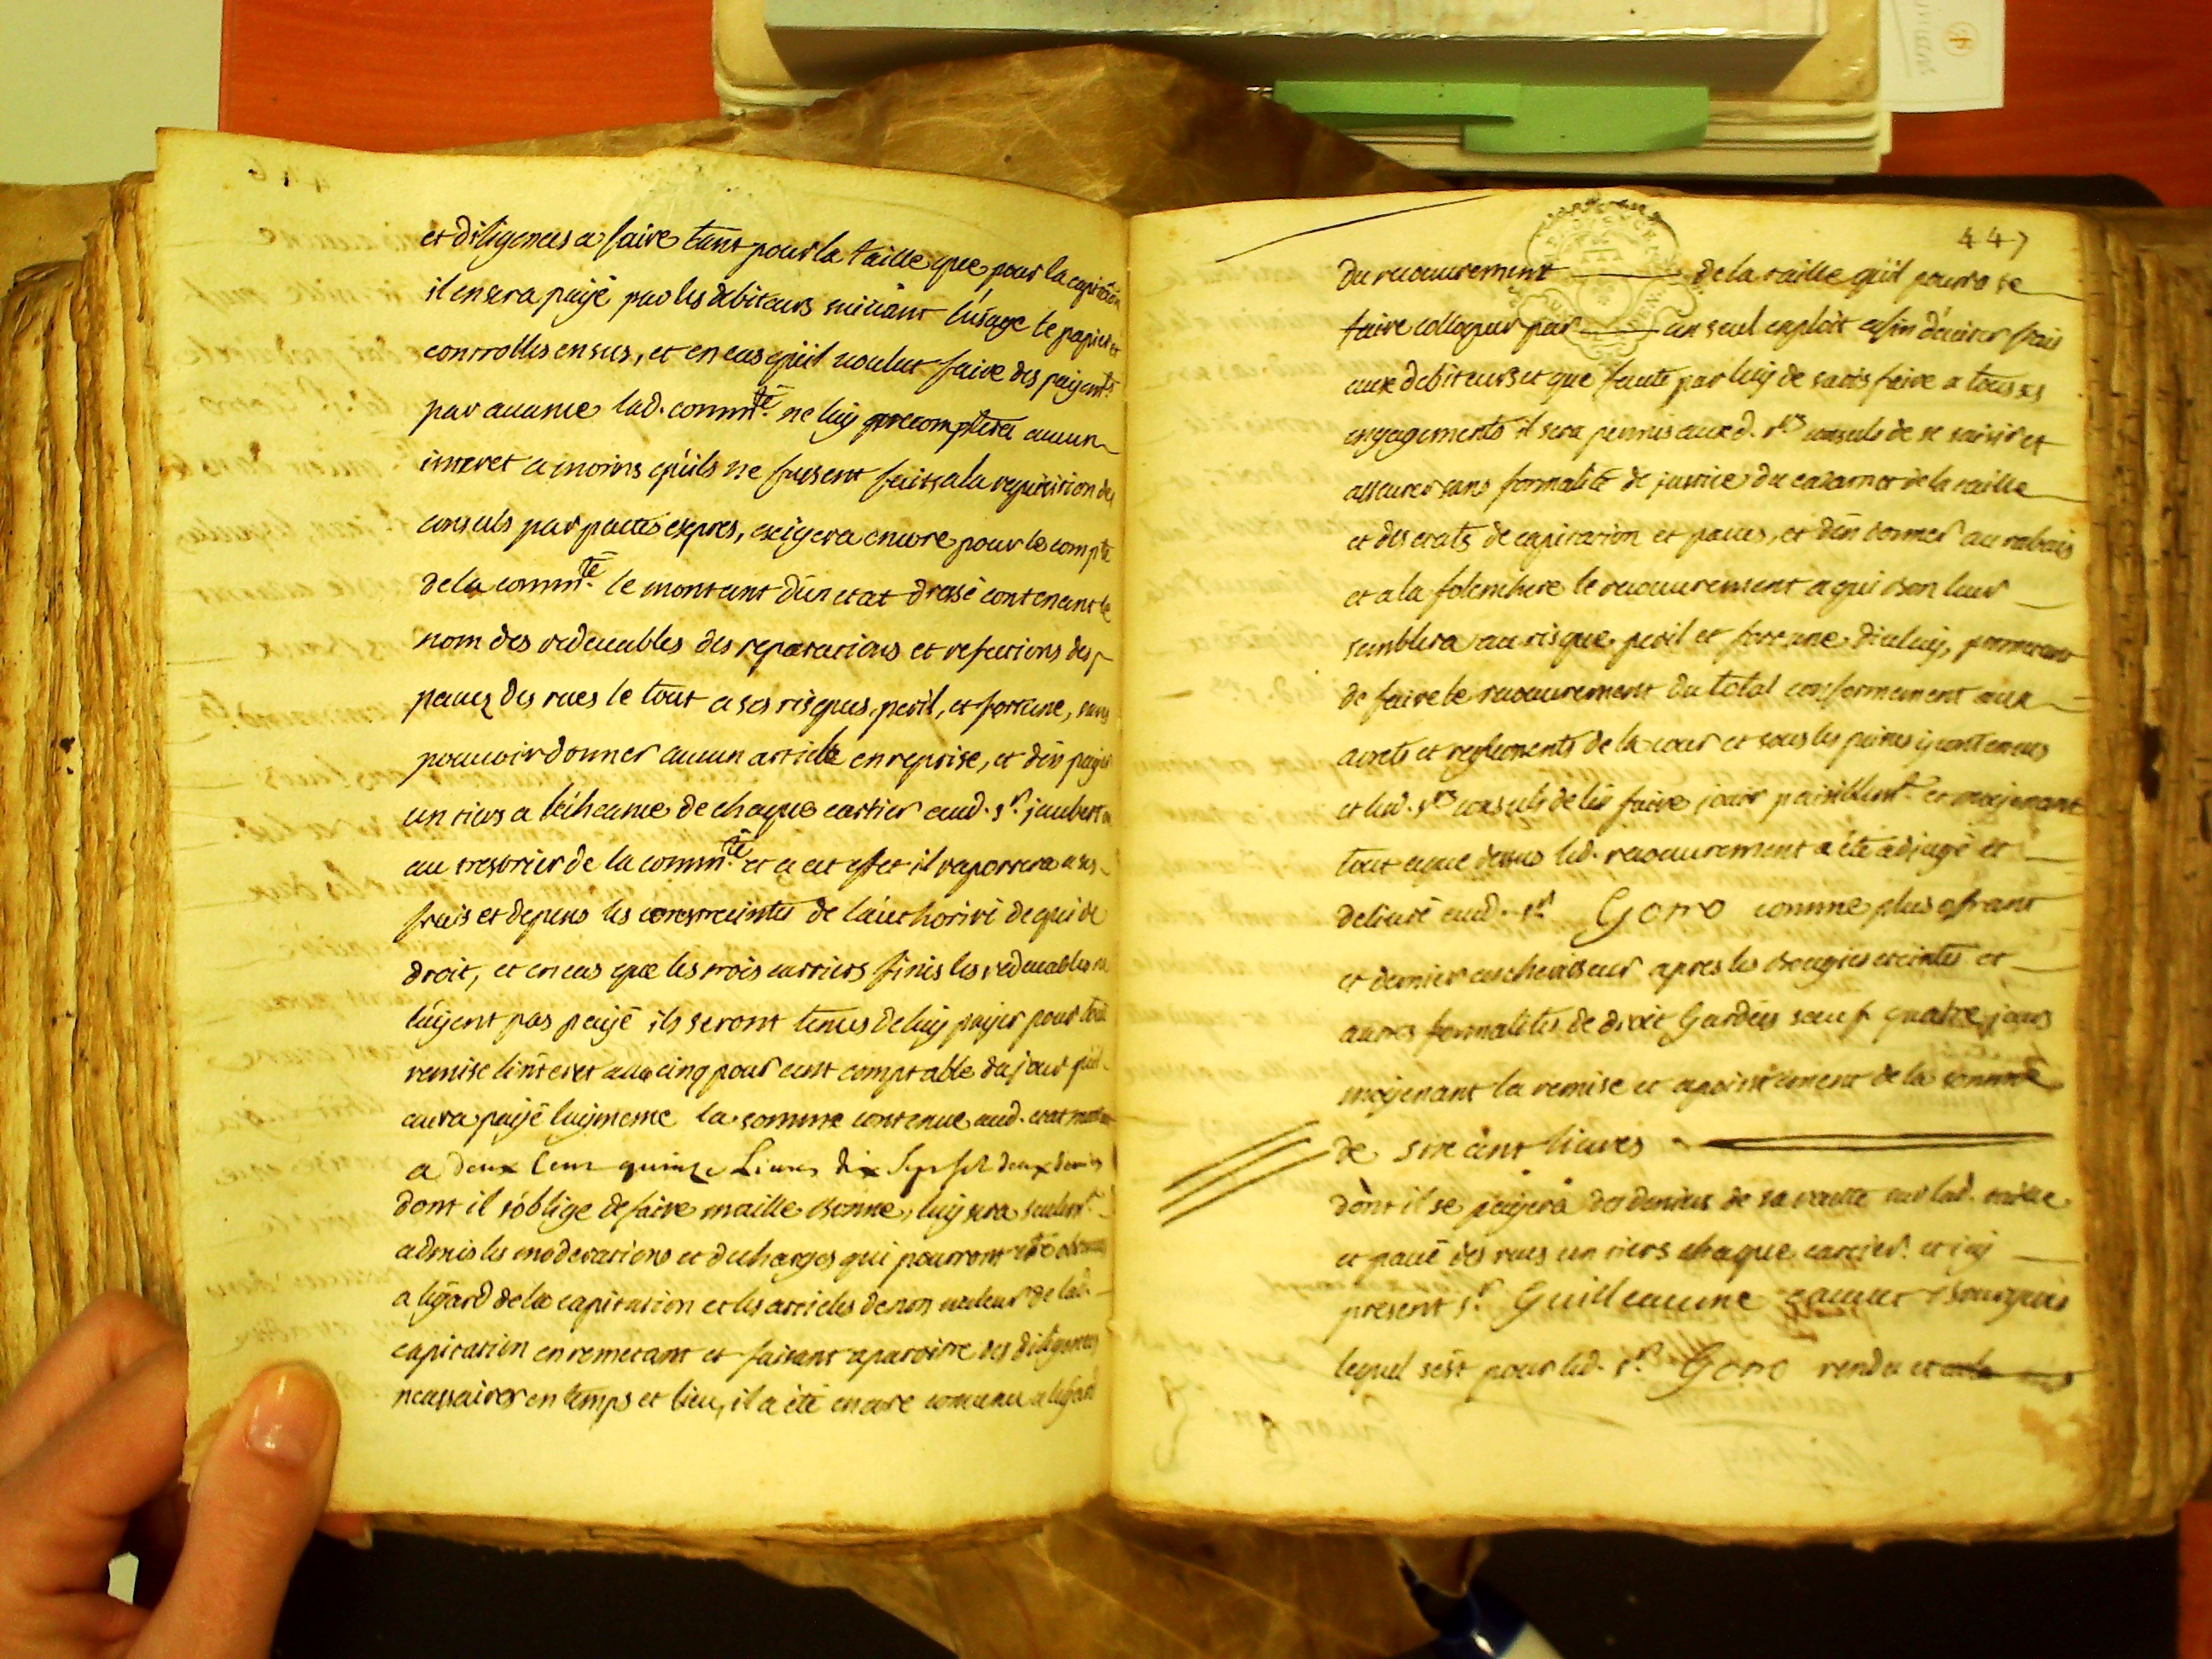 et diligences a faire tant pour la taille que pour la capitation
il en sera payé par les debiteurs suivant l'usage le papier et
controlles en sus, et en cas qu'il voulut faire des payemts
par avance lad. commté ne luy precomptera aucun
interet a moins qu'ils ne fussent faits a la requisition des
consuls par pactes expres, exigera encore pour le compte
de la commté le montant d'un etat dressé contenant le
nom des redevables des reparations et refections des
pavez des rues le tout a ses risques, peril, et fortune, sans
pouvoir donner aucun article en reprise, et d'en payer
un tiers a l'écheance de chaque cartier aud. sr. jaubert ou
au tresorier de la commté et a cet effet il raportera a ses
frais et depens les contraintes de l'authorité de qui de
droit, et en cas que les trois cartiers finis les redevables ne
l'ayent pas payé ils seront tenus de luy payer pour toute
remise l'interet au cinq pour cent comptable du jour qu'il
aura payé luy meme la somme contenue aud. etat montant
a deux cens quinze Livres dix sept sols deux deniers
dont il s'oblige de faire maille bonne, luy sera seulemt.
admis les moderations et decharges qui pourront etre obtenues
a l'égard de la capitation et les articles de non valeur de lad.
capitation en remetant et faisant aparoitre des diligences
necessaires en temps et lieu, il a été encore convenu a l'égard
447
du recouvrement de la taille qu'il pourra se
faire colloquer par un seul exploit afin d'eviter frais
aux debiteurs et que faute par luy de satisfaire a tous ses
engagements il sera permis auxd. srs consuls de se saisir et
assurer sans formalité de justice du cadastre de la taille
et des etats de capitation et pavés, et d'en donner au rabais
et a la folenchere le recouvrement a qui bon leur
semblera au risque, peril et fortune d'iceluy, promettant
de faire le recouvrement du total conformement aux
arrets et reglements de la cour et sous les peines y contenues
et led. srs consuls de l'en faire jouir paisiblemt. et moyenant
tout ce que dessus led. recouvrement a été adjugé et
delivré aud. sr. Gorro comme plus ofrant
et dernier encherisseur apres les bougies eteintes et
autres formalités de droit Gardées sauf quatre jours
moyenant la remise et apointement de la somme
de six cent livres
dont il se payera des deniers de sa recette sur lad. taille
et pavé des rues un tiers chaque cartier. et icy
present sr. Guilleaume bourgeois
lequel s'est pour led. sr. Gorro rendu et